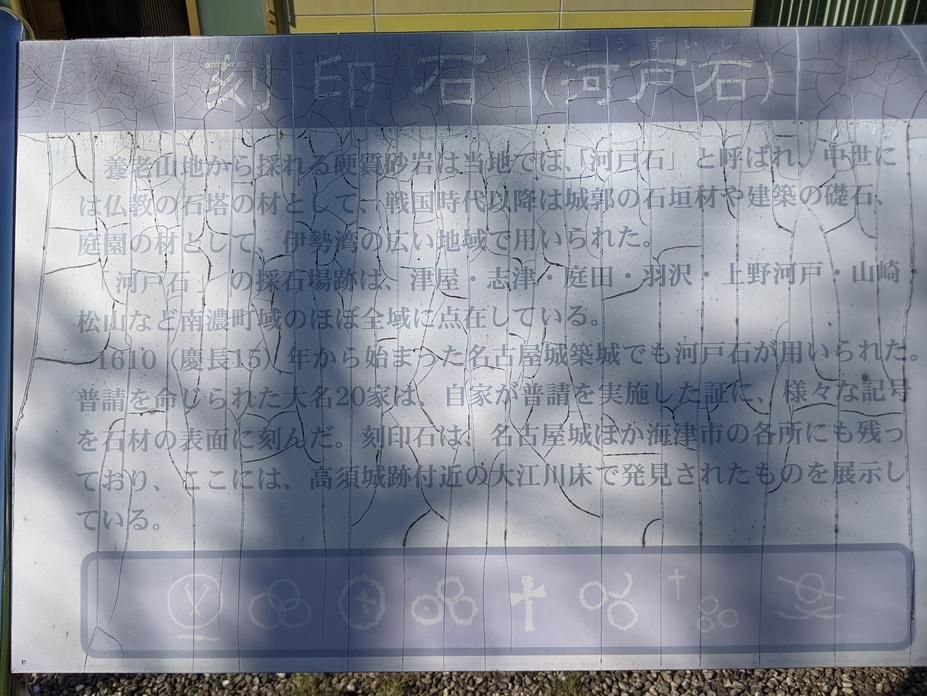 こうずいし
刻印石 (河戸石)
養老山地から採れる硬質砂岩は当地では、「河戸石」と呼ばれ、中世に
は仏教の石塔の材として、戦国時代以降は城郭の石垣材や建築の礎石、
庭園の材として、伊勢湾の広い地域で用いられた。
「河戸石」の採石場跡は、津屋・志津・庭田・羽沢・上野河戸・山崎
松山など南濃町域のほぼ全域に点在している。
1610（慶長15）年から始まった名古屋城築城でも河戸石が用いられた。
普請を命じられた大名20家は、自家が普請を実施した証に、様々な記号
を石材の表面に刻んだ。刻印石は、名古屋城ほか海津市の各所にも残っ
ており、ここには、高須城跡付近の大江川床で発見されたものを展示し
ている。